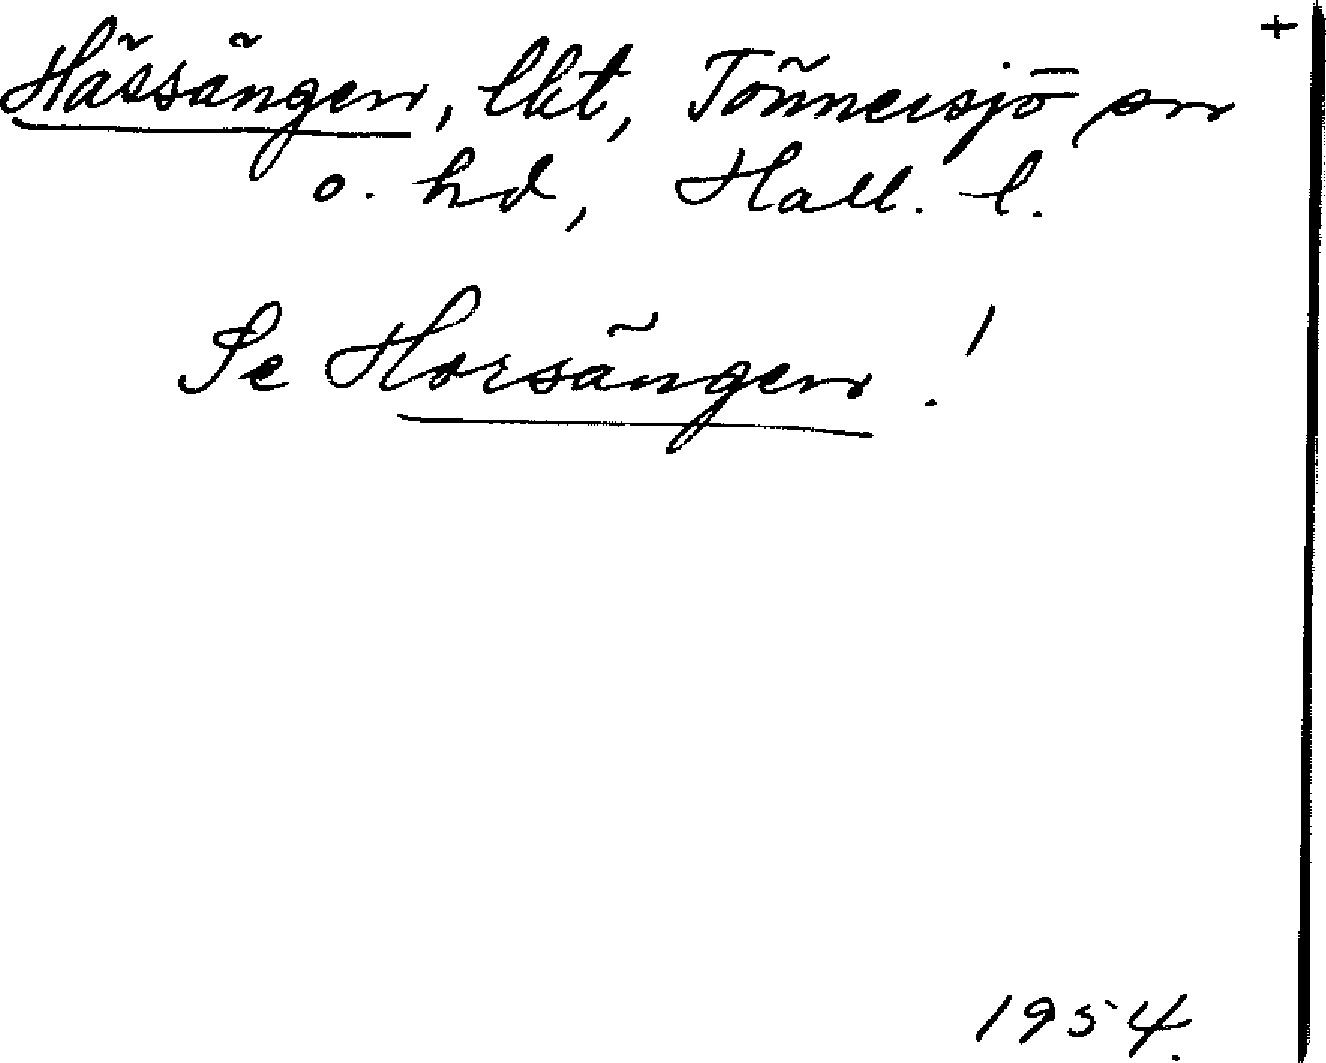 +
Hässängen, lkt, Tönnersjö sn
o. hd, Hall. l.
Se Horsängen!
1954.